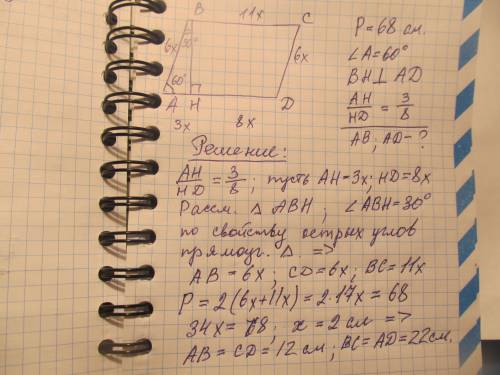 B 11x C
6x 30° 6x
60°
A H D
3x 8x
P = 68 см.
∠A = 60°
BH ⊥ AD
AH/HD = 3/8
AB, AD - ?
Решение:
AH/HD = 3/8 ; пусть AH = 3x; HD = 8x
Рассм. △ ABH ; ∠ABH = 30°
по свойству острых углов
прямоуг. △. =>
AB = 6x ; CD = 6x ; BC = 11x
P = 2(6x+11x) = 2·17x = 68
34x = 68 ; x = 2 см =>
AB = CD = 12 см ; BC = AD = 22 см.